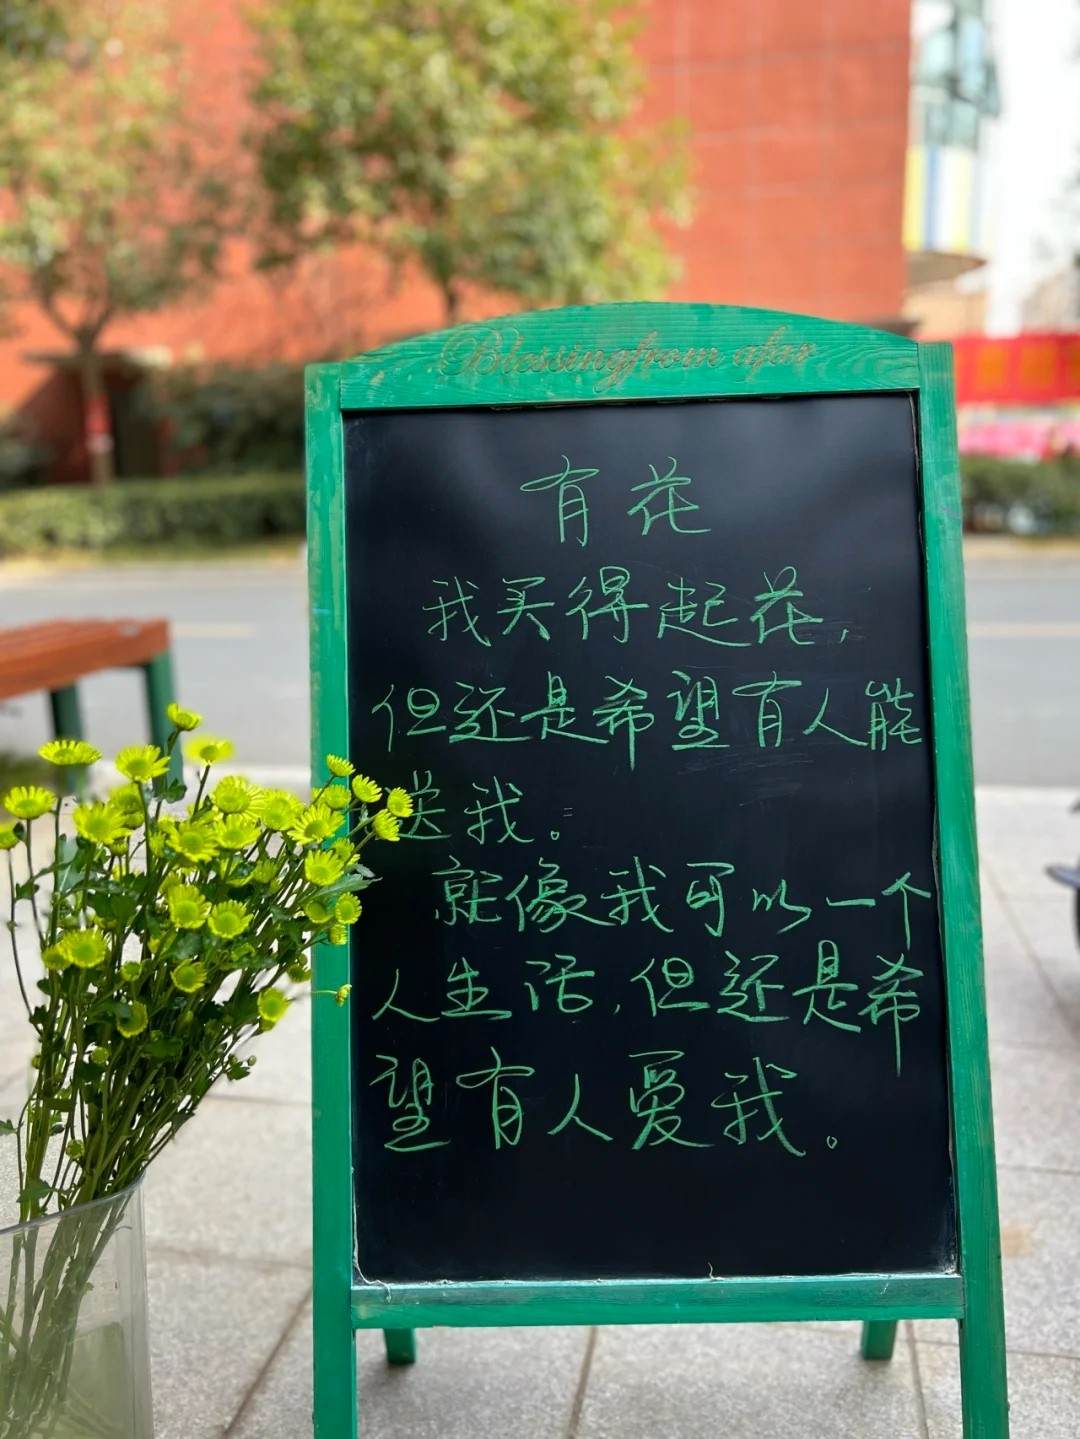 Blessingfrom afar
有花
我买得起花,
但还是希望有人能
送我。
就像我可以一个
人生活,但还是希
望有人爱我。